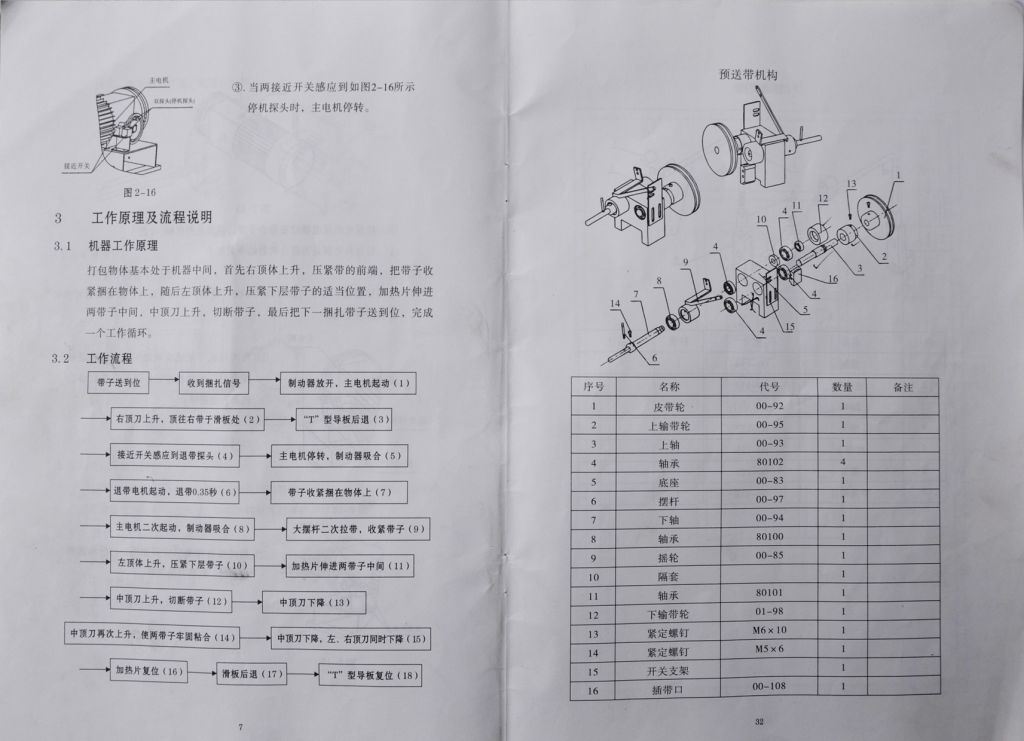 主电机
双探头(停机探头)
接近开关
图2-16
③. 当两接近开关感应到如图2-16所示
停机探头时, 主电机停转。
3 工作原理及流程说明
3.1 机器工作原理
打包物体基本处于机器中间, 首先右顶体上升, 压紧带的前端, 把带子收
紧捆在物体上, 随后左顶体上升, 压紧下层带子的适当位置, 加热片伸进
两带子中间, 中顶刀上升, 切断带子, 最后把下一捆扎带子送到位, 完成
一个工作循环。
3.2 工作流程
带子送到位 收到捆扎信号 制动器放开, 主电机起动 (1)
右顶刀上升, 顶往右带子滑板处 (2) “T” 型导板后退 (3)
接近开关感应到退带探头 (4) 主电机停转, 制动器吸合 (5)
退带电机起动, 退带0.35秒 (6) 带子收紧捆在物体上 (7)
主电机二次起动, 制动器吸合 (8) 大摆杆二次拉带, 收紧带子 (9)
左顶体上升, 压紧下层带子 (10) 加热片伸进两带子中间 (11)
中顶刀上升, 切断带子 (12) 中顶刀下降 (13)
中顶刀再次上升, 使两带子牢固粘合 (14) 中顶刀下降, 左. 右顶刀同时下降 (15)
加热片复位 (16) 滑板后退 (17) “T” 型导板复位 (18)
7
预送带机构
1
13
12
11
4
10
2
3
16
4
5
15
4
9
4
8
7
14
6
序号 名称 代号 数量 备注
1 皮带轮 00-92 1
2 上输带轮 00-95 1
3 上轴 00-93 1
4 轴承 80102 4
5 底座 00-83 1
6 摆杆 00-97 1
7 下轴 00-94 1
8 轴承 80100 1
9 摇轮 00-85 1
10 隔套 1
11 轴承 80101 1
12 下输带轮 01-98 1
13 紧定螺钉 M6×10 1
14 紧定螺钉 M5×6 1
15 开关支架 1
16 插带口 00-108 1
32